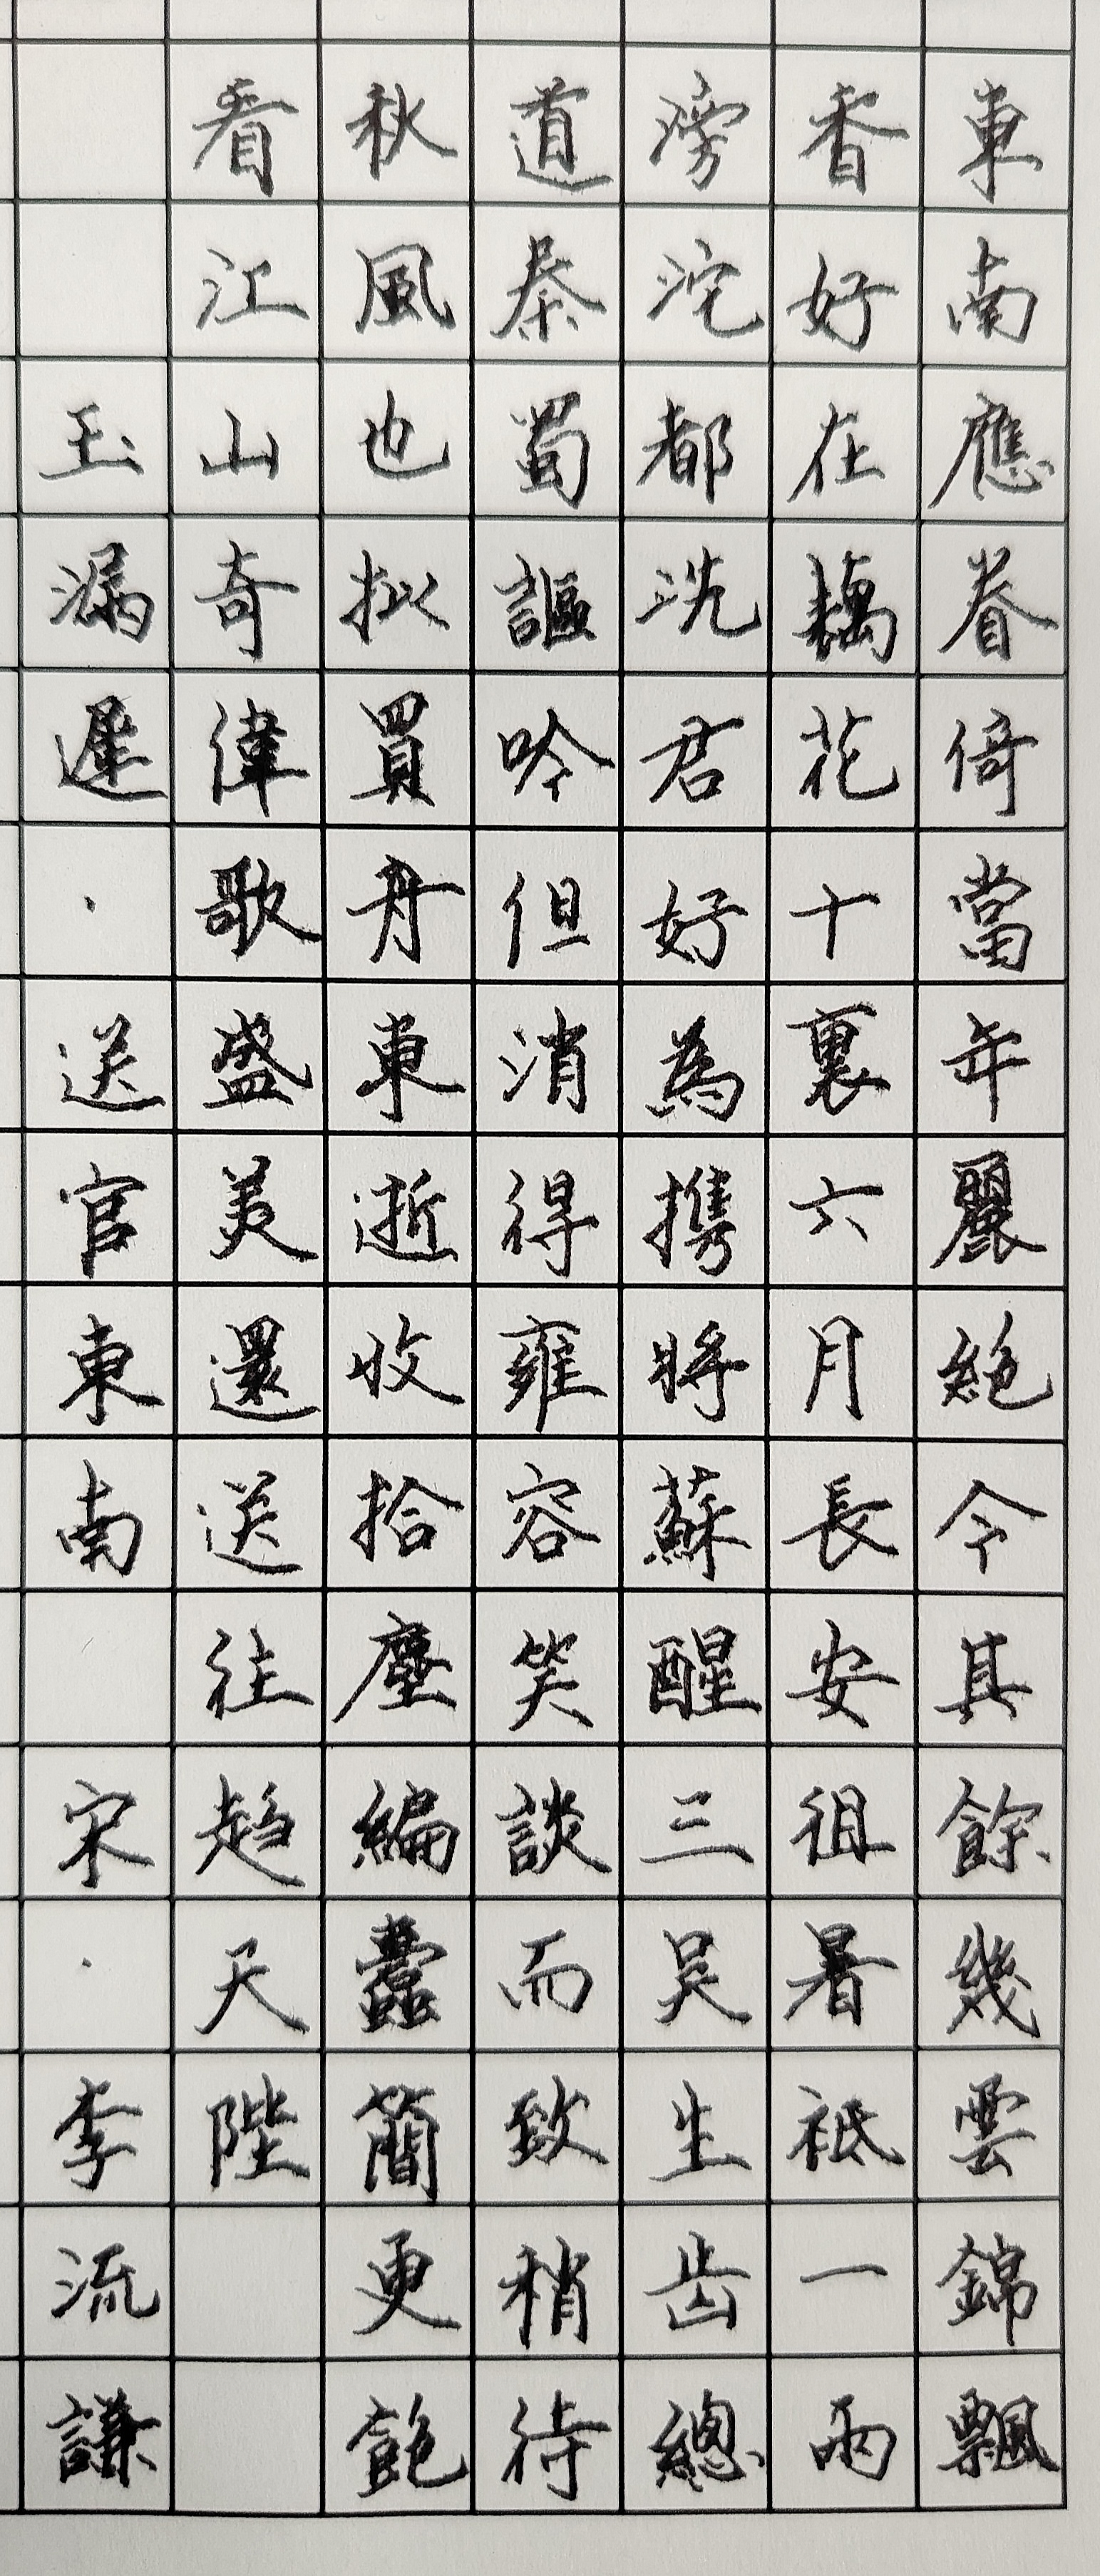 東南應眷倚當年麗絕今其餘幾雲錦飄
香好在藕花十裏六月長安徂暑祗一雨
滂沱都洗君好為携將蘇醒三吴生齿總
道泰蜀謳吟但消得雍容笑談而致稍待
秋風也拟買舟東逝收拾塵編蠹簡更飽
看江山奇偉歌盛美還送往趋天陛
玉漏遲·送官東南 宋·李流謙